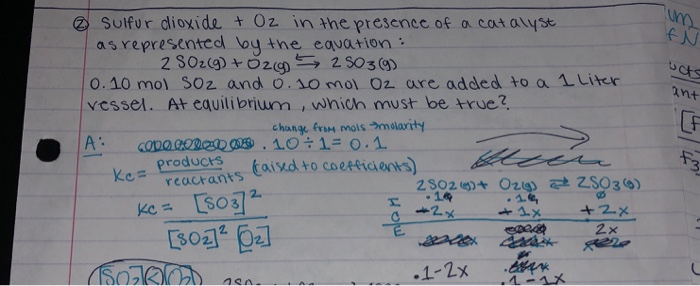 ② Sulfur dioxide + O2 in the presence of a catalyst
as represented by the equation:
2 SO2(g) + O2(g) ⇆ 2 SO3(g)
0.10 mol SO2 and 0.10 mol O2 are added to a 1 Liter
vessel. At equilibrium, which must be true?
change from mols → molarity
A: .10 ÷ 1 = 0.1
Kc = products / reactants (raised to coefficients)
2 SO2(g) + O2(g) ⇄ 2 SO3(g)
I .10 .10 0
C -2x -1x +2x
E 2x
.1-2x .1-1x
Kc = [SO3]² / [SO2]² [O2]
[SO2] < [O2]